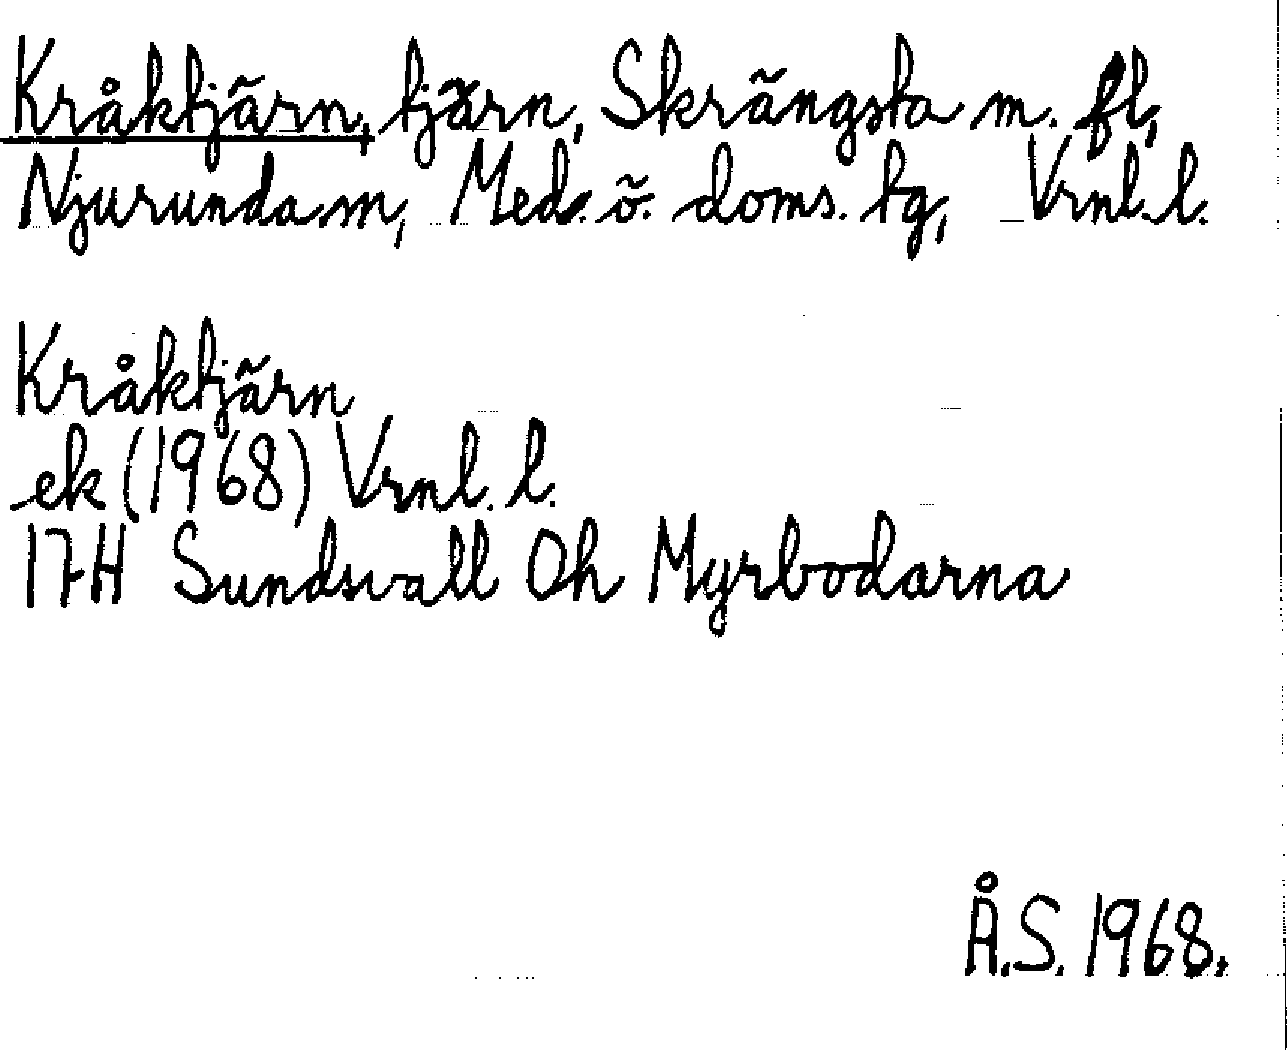 Kråktjärn, tjärn, Skrängsta m. fl,
Njurunda m, Med. ö. doms. tg, Vrnl. l.
Kråktjärn
ek (1968) Vrnl. l.
17H Sundsvall Oh Myrbodarna
Å.S. 1968.